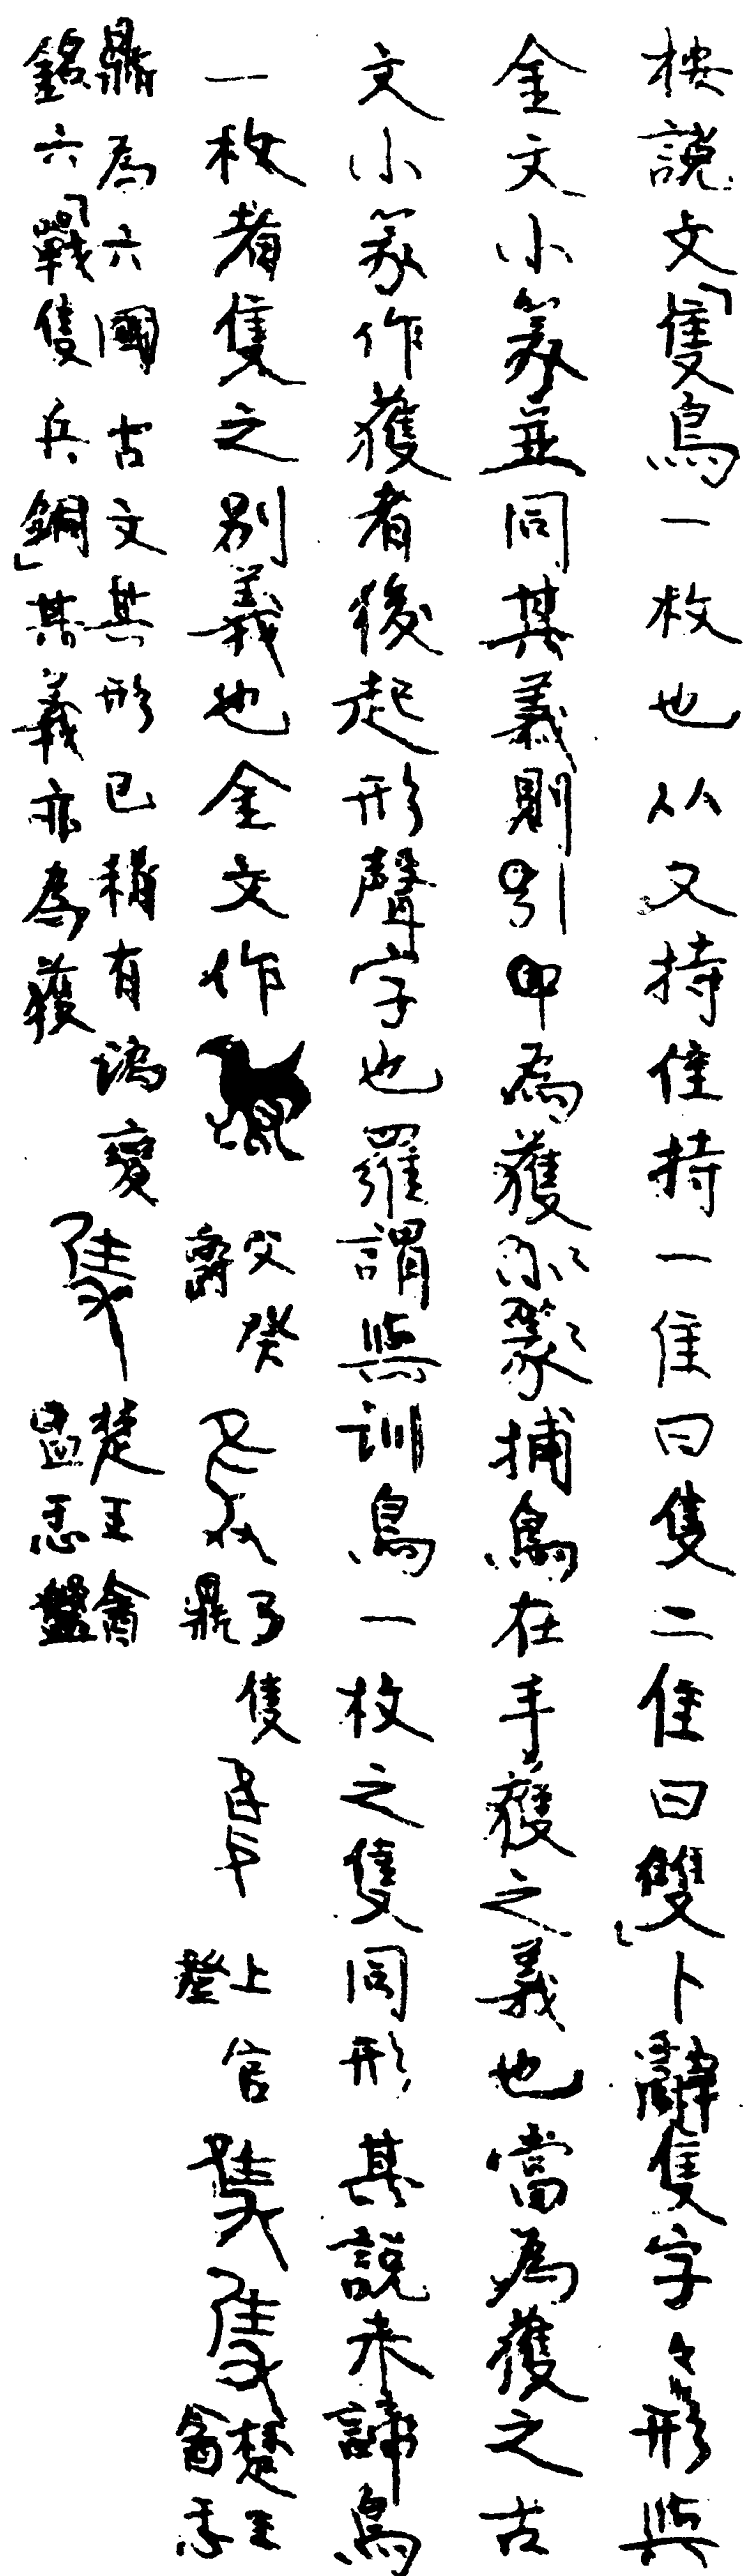 按說文「隻鳥一枚也从又持隹持一隹曰隻二隹曰雙」卜辭隻字々形與
金文小篆並同其義則引申為獲小篆捕鳥在手獲之義也當為獲之古
文小篆作獲者後起形聲字也羅謂與訓鳥一枚之隻同形其說未諦鳥
一枚者隻之別義也金文作父癸爵弓隻鼎上官登楚王酓忎
鼎為六國古文其形已稍有譌變
銘六「戰隻兵銅」其義亦為獲
楚王酓
忎盤